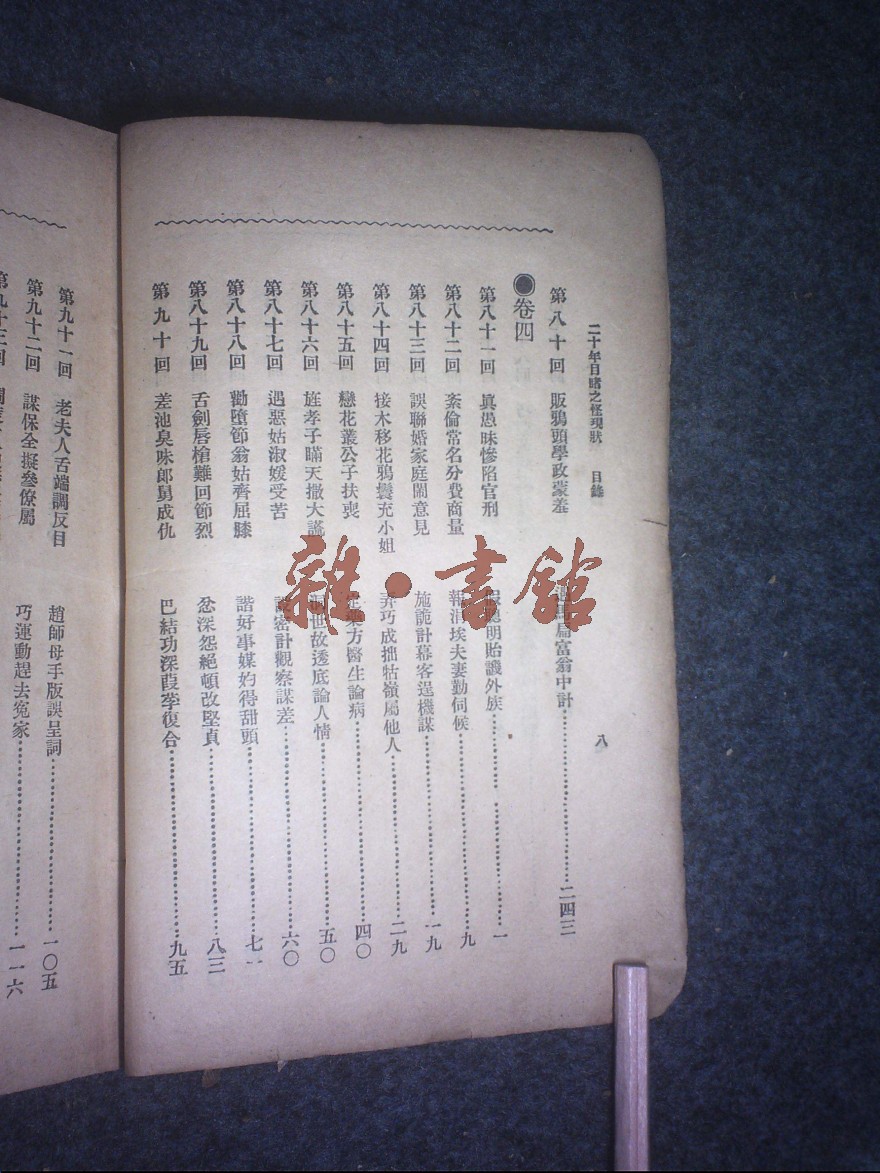 二十年目睹之怪現狀 目錄 八
第八十回 販鴉頭學政蒙羞 馬扁富翁中計 二四三
●卷四
第八十一回 眞愚昧慘陷官刑 聰明貽譏外族 一
第八十二回 紊倫常名分費商量 報涓埃夫妻勤伺候 九
第八十三回 誤聯婚家庭鬧意見 施詭計幕客逞機謀 一九
第八十四回 接木移花鴉鬟充小姐 弄巧成拙牯嶺屬他人 二九
第八十五回 戀花叢公子扶喪 定藥方醫生論病 四〇
第八十六回 旌孝子瞞天撒大謊 洞世故透底論人情 五〇
第八十七回 遇惡姑淑媛受苦 設密計觀察謀差 六〇
第八十八回 勸墮節翁姑齊屈膝 諧好事媒妁得甜頭 七一
第八十九回 舌劍唇槍難回節烈 忿深怨絕頓改堅貞 八三
第九十回 差池臭味郎舅成仇 巴結功深葭莩復合 九五
第九十一回 老夫人舌端調反目 趙師母手版誤呈詞 一〇五
第九十二回 謀保全擬參僚屬 巧運動趕去冤家 一一六
第九十三回
雜·書館